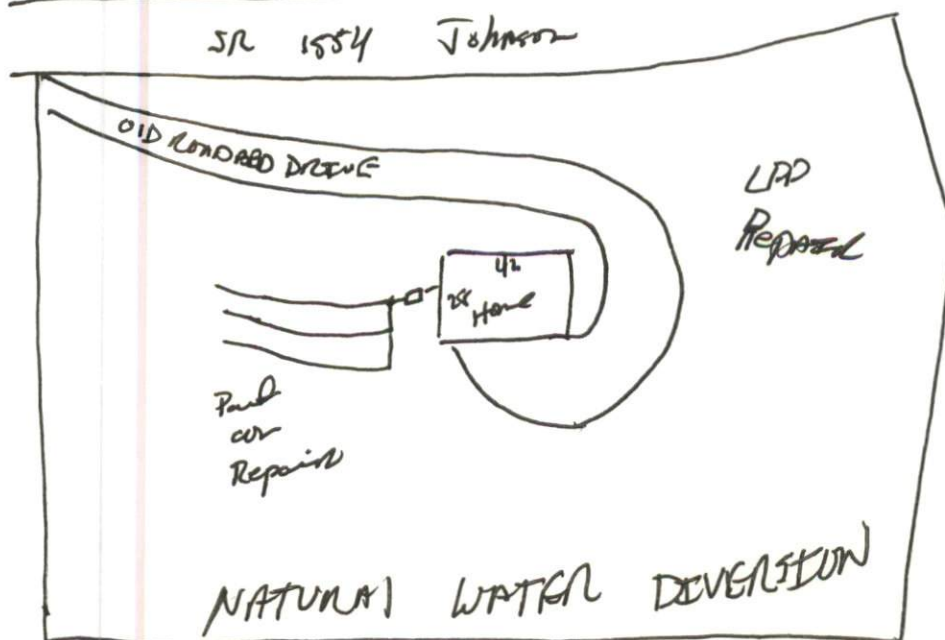 SR 1554 Johnson
OLD ROADBED DRIVE
LPP
Repair
42
28
Home
or
Repair
NATURAL WATER DIVERSION